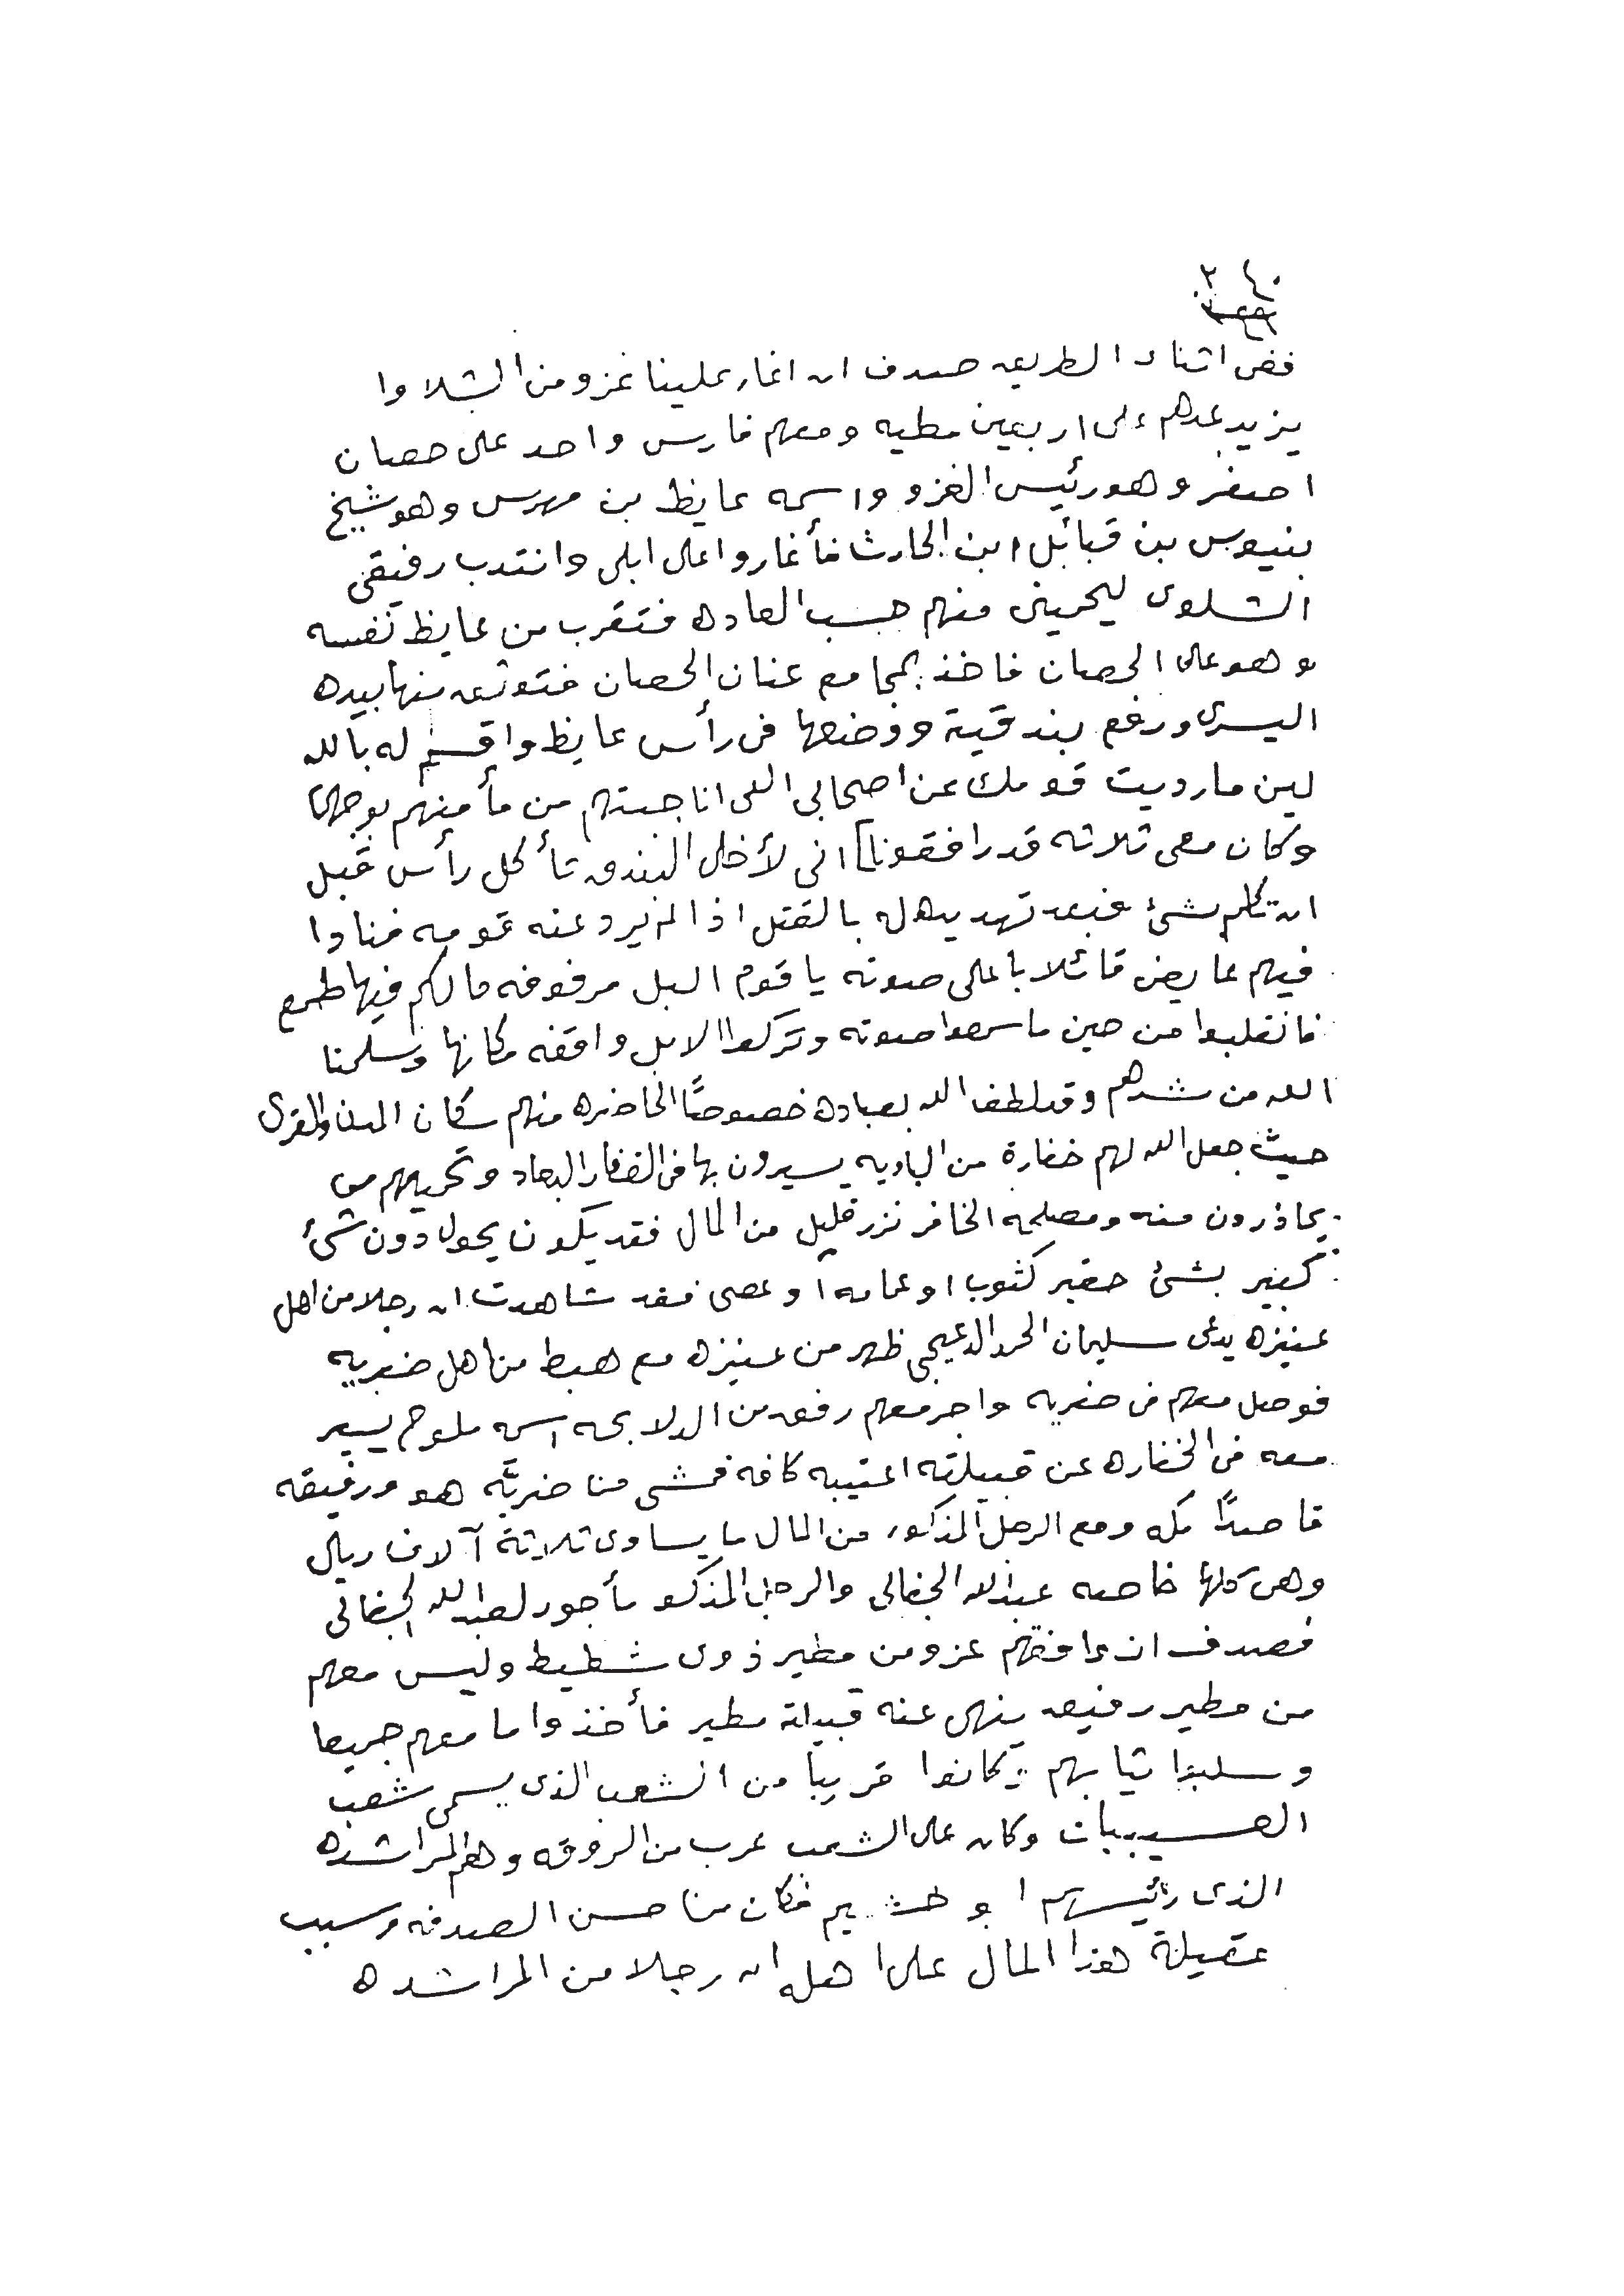 ٢٤٠
ففى اثناء الطريق صدف ان اغار علينا غزو من الشلاوا
يزيد عددهم على اربعين مطيه ومعهم فارس واحد على حصان
اصفر وهو رئيس الغزو واسمه عايظ بن مهرس وهو شيخ
بنيوس بن قبائل ابن الحارث فأغاروا على ابلى وانتدب رفيقى
الشلوى ليحمينى منهم حسب العاده فتقرب من عايظ نفسه
وهو على الحصان فاخذ بمجامع عنان الحصان فتوثق منها بيده
اليسرى ورفع بندقية ووضعها فى رأس عايظ واقسم له بالله
لين مارديت قومك عن اصحابى اللى انا جبتهم من مأمنهم بوجهى
وكان معى ثلاثه قد رافقونا] انى لأخلى البندق تأكل رأس قبل
ان تكلم بشئ فبعد تهديده له بالقتل اذا لم يرد عنه قومه فنادا
فيهم عايض قائلا باعلى صوته ياقوم البل مرفوقه مالكم فيها طمع
فانقلبوا من حين ماسمعوا صوته وتركوا الابل واقفه مكانها وسلمنا
الله من شدهم وقد لطف الله بعباده خصوصًا الحاضره منهم سكان المدن والقرى
حيث جعل الله لهم خفارة من الباديه يسيرون بها فى القفار البعاد وتحميهم من
يحاذرون منه ومصلحه الخافر نزر قليل من المال فقد يكون يحول دون شئ
كبير بشئ حقير كثوب او عمامه او عصى فقد شاهدت ان رجلا من اهل
عنيزه يدعى سليمان الحمد الدعيجى ظهر من عنيزه مع هبط من اهل ضريه
فوصل معهم فى ضريه واجر معهم رفيق من الدلابحه اسمه ملوح يسير
معه فى الخفاره عن قبيلته اعتيبه كافه فمشى من ضريَّه هو ورفيقه
قاصدًا مكه ومع الرجل المذكور من المال مايساوى ثلاثة آلاف ريال
وهى كلها خاصه عبدالله الجفالى والرجل المذكور مأجور لعبدالله الجفالى
فصدف ان وافقهم غزو من مطير ذوى شطيط وليس معهم
من مطير رفيق ينهى عنه قبيلة مطير فأخذوا ما معهم جميعا
وسلبوا ثيابهم وكانوا قريبًا من الشعب الذى يسمى شعب
العسيبيات وكان على الشعب عرب من الروقه وهم المراشده
الذى رئيسهم ابو خشيم فكان من حسن الصدفه وسبب
عقيلة هذا المال على اهله ان رجلا من المراشده